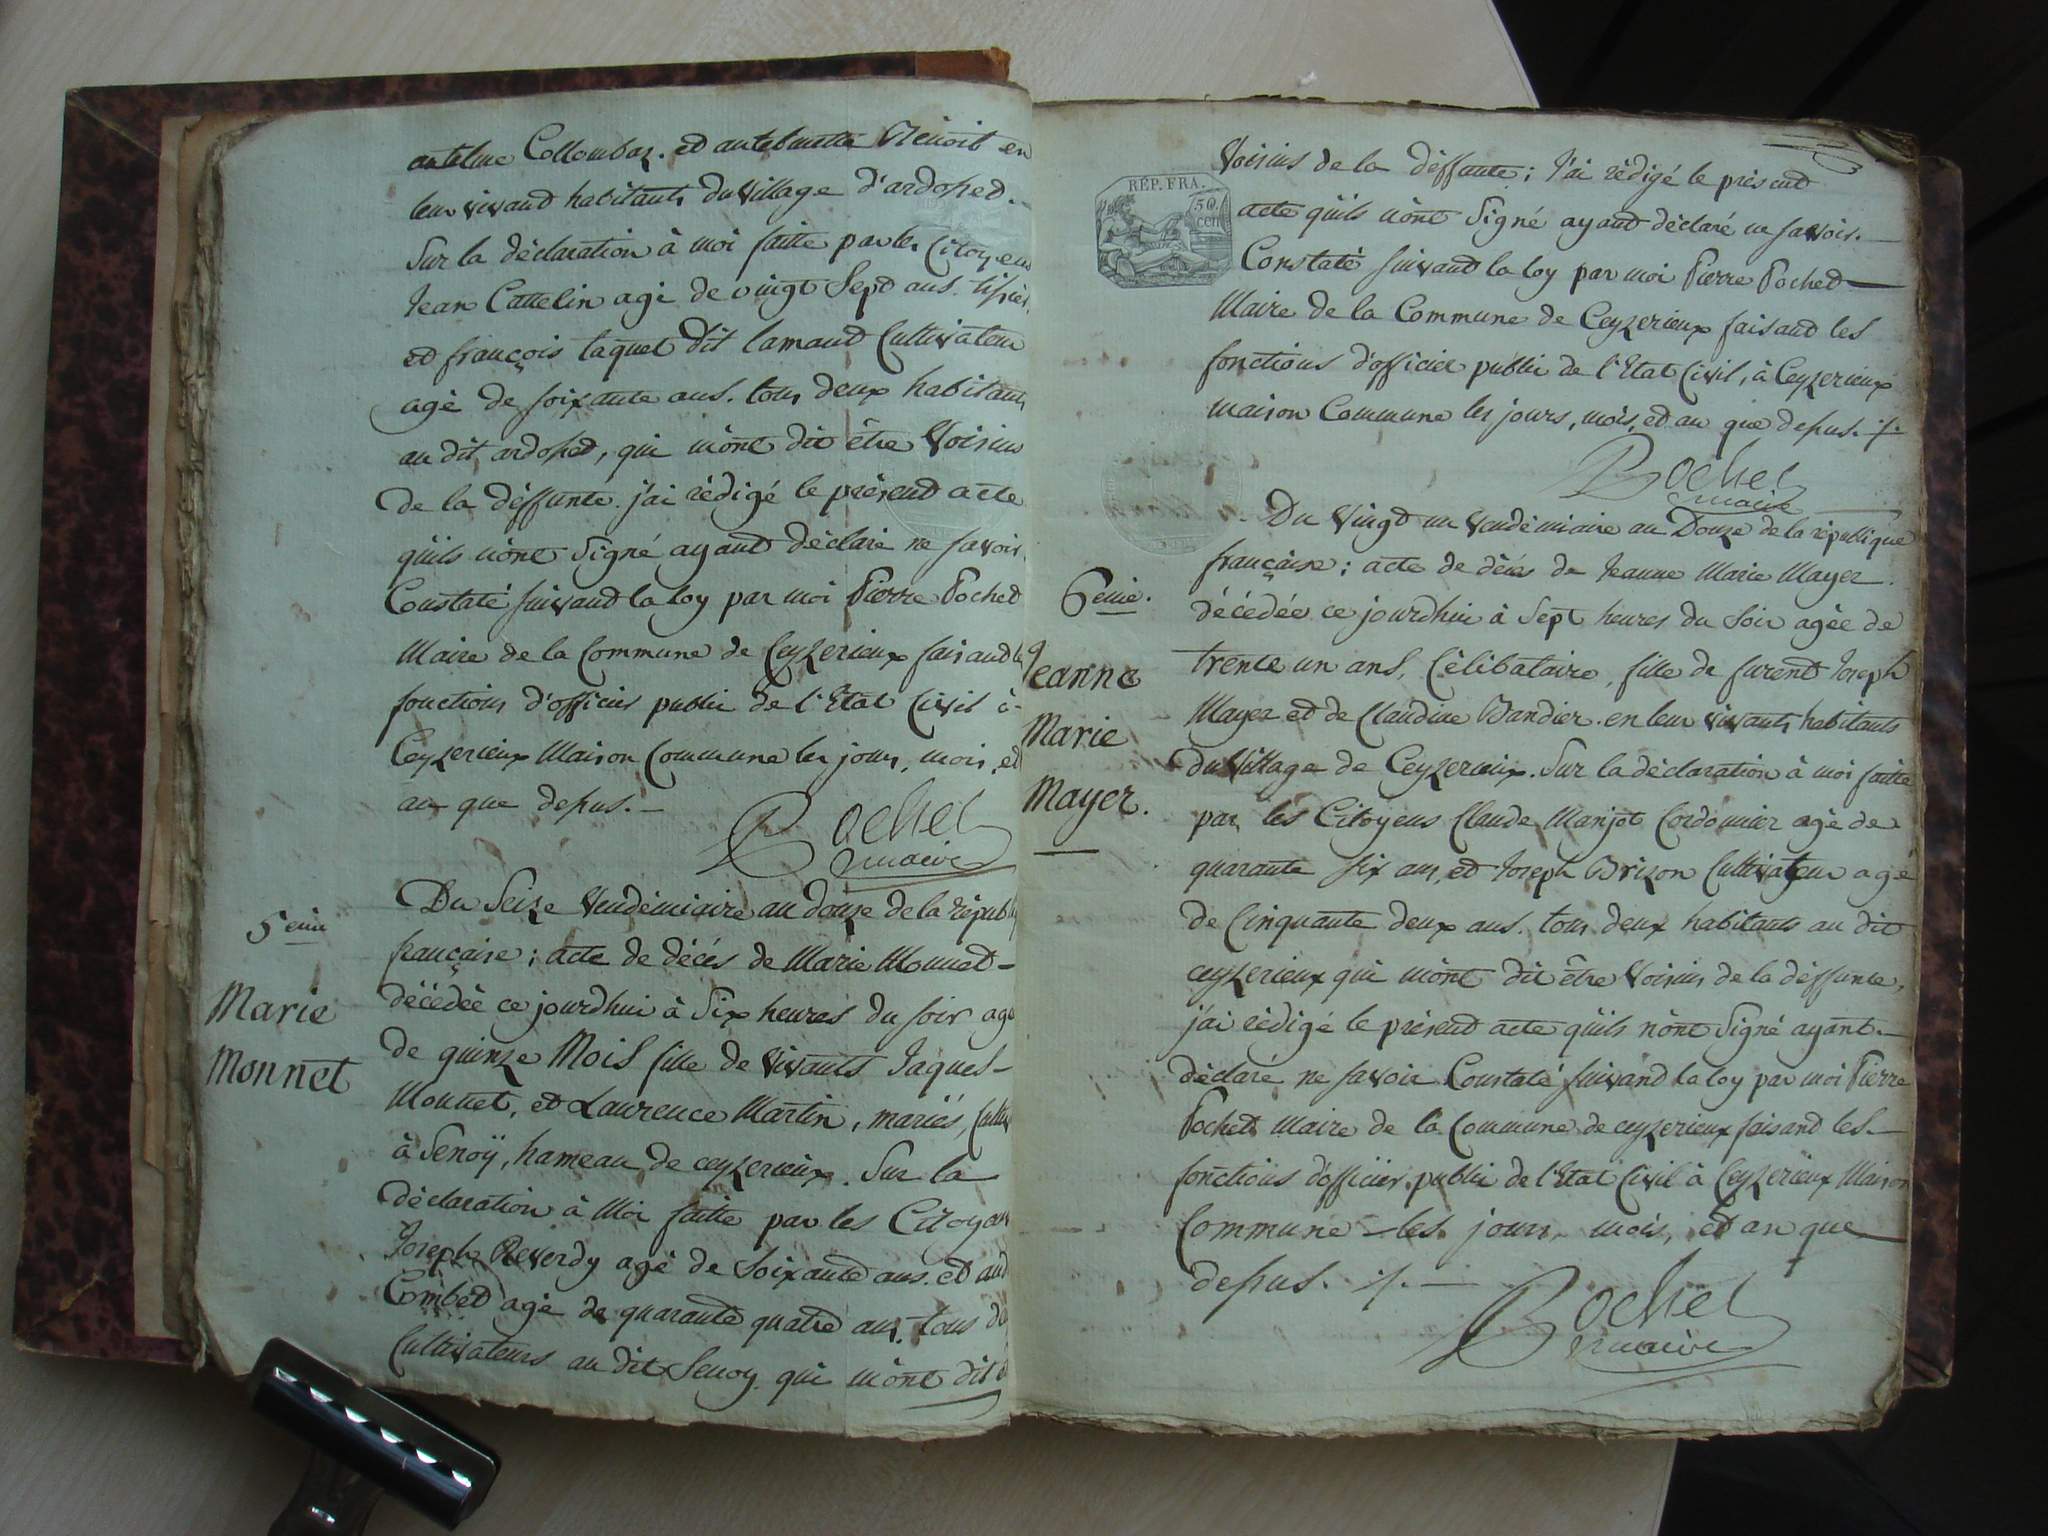 antelme Collombaz. et anthelmette Benoit en
leur vivant habitants du Village d'ardosset.
Sur la déclaration à moi faitte par les Citoyens
Jean Cattelin agé de vingt Sept ans. tissier,
et françois taquet dit lamand Cultivateur
agé de soixante ans. tous deux habitants
au dit ardosset, qui m'ont dit être Voisins
de la déffunte. j'ai rédigé le présent acte
quils n'ont Signé ayant déclaré ne savoir.
Constaté suivant la loy par moi Pierre Pochet
Maire de la Commune de Ceyzerieux faisant les
fonctions d'officier public de l'Etat Civil à
Ceyzerieux Maison Commune les jour, mois, et
an que dessus.
Pochet
maire
5eme
Marie
Monnet
Du Seize Vendémiaire an douze de la républi
française; acte de décés de Marie Monnet
décédée ce jourdhui à Six heures du soir agé
de quinze Mois fille de vivants Jaques
Monnet, et Laurence Martin, mariés, Cultiv
à Senoÿ, hameau de ceyzerieux. Sur la
déclaration à Moi faitte par les Citoyens
Joseph Reverdy agé de Soixante ans. et
Combet agé de quarante quatre ans. tous de
Cultivateurs au dit Senoy qui m'ont dit
REP. FRA.
50.
cen
Voisins de la déffunte; J'ai rédigé le présent
acte quils n'ont Signé ayant déclaré ne savoir.
Constaté suivant la loy par moi Pierre Pochet
Maire de la Commune de Ceyzerieux faisant les
fonctions d'officier public de l'Etat Civil, à Ceyzerieux
maison Commune les jours, mois, et an que dessus. ./.
Pochet
maire
6eme.
Jeanne
Marie
Mayer.
Du Vingt un Vendémiaire an Douze de la république
française; acte de décés de Jeanne Marie Mayer.
décédée ce jourdhui à Sept heures du Soir agée de
trente un ans, Célibataire, fille de furent Joseph
Mayer et de Claudine Bandier. en leur vivants habitants
du Village de Ceyzerieux. Sur la déclaration à moi faitte
par les Citoyens Claude Manjot Cordonnier agé de
quarante six ans, et Joseph Brizon Cultivateur agé
de Cinquante deux ans. tous deux habitants au dit
ceyzerieux qui m'ont dit être Voisins de la déffunte,
j'ai rédigé le présent acte quils n'ont Signé ayant
déclaré ne savoir Constaté suivant la loy par moi Pierre
Pochet Maire de la Commune de ceyzerieux faisant les
fonctions d'officier public de l'Etat Civil à Ceyzerieux Maison
Commune les jour, mois, et an que
dessus. ./.
Pochet
maire